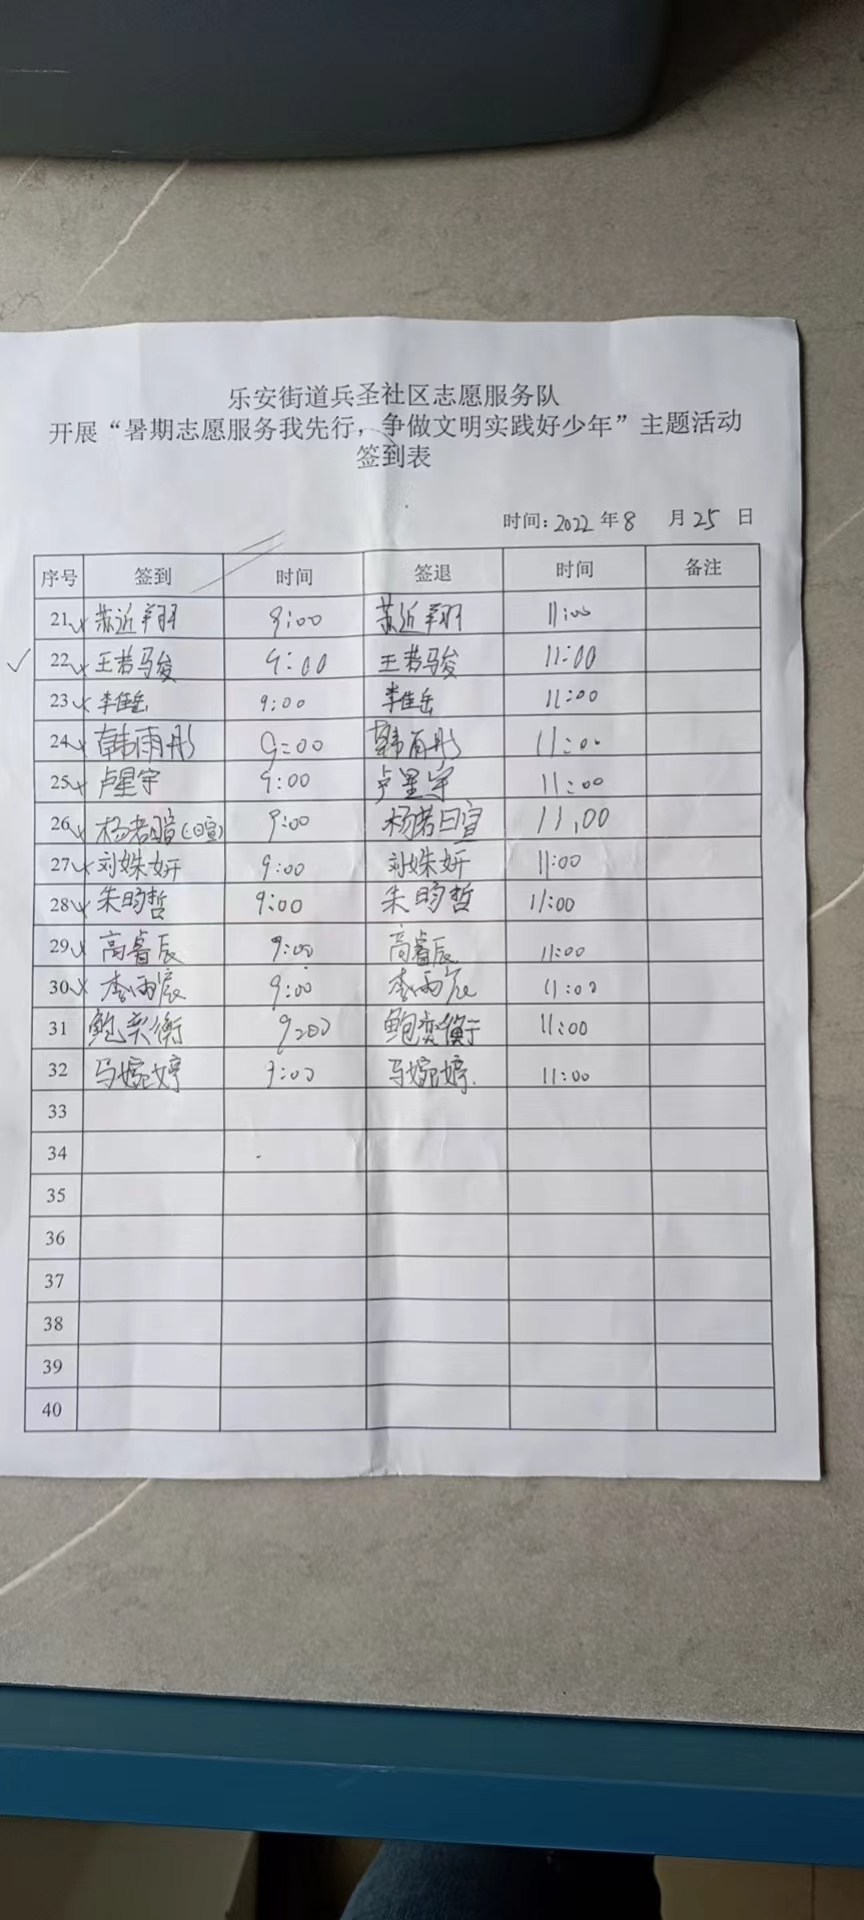 乐安街道兵圣社区志愿服务队
开展“暑期志愿服务我先行，争做文明实践好少年”主题活动
签到表
时间：2022年8月25日
序号 签到 时间 签退 时间 备注
21 苏近翔 9:00 苏近翔 11:00
22 王若骏 9:00 王若骏 11:00
23 李佳岳 9:00 李佳岳 11:00
24 韩雨彤 9:00 韩雨彤 11:00
25 卢星宇 9:00 卢星宇 11:00
26 杨若暄(日宣) 9:00 杨若暄 11:00
27 刘姝妍 9:00 刘姝妍 11:00
28 朱昀哲 9:00 朱昀哲 11:00
29 高睿辰 9:00 高睿辰 11:00
30 李雨宸 9:00 李雨宸 11:00
31 鲍奕衡 9:00 鲍奕衡 11:00
32 马婉婷 9:00 马婉婷 11:00
33
34
35
36
37
38
39
40